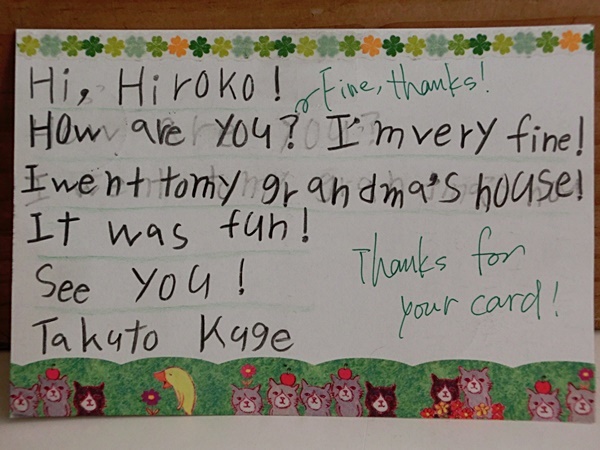 Hi, Hiroko!
Fine, thanks!
How are you? I'm very fine!
I went to my grandma's house!
It was fun!
See you!
Thanks for
your card!
Takuto Kage